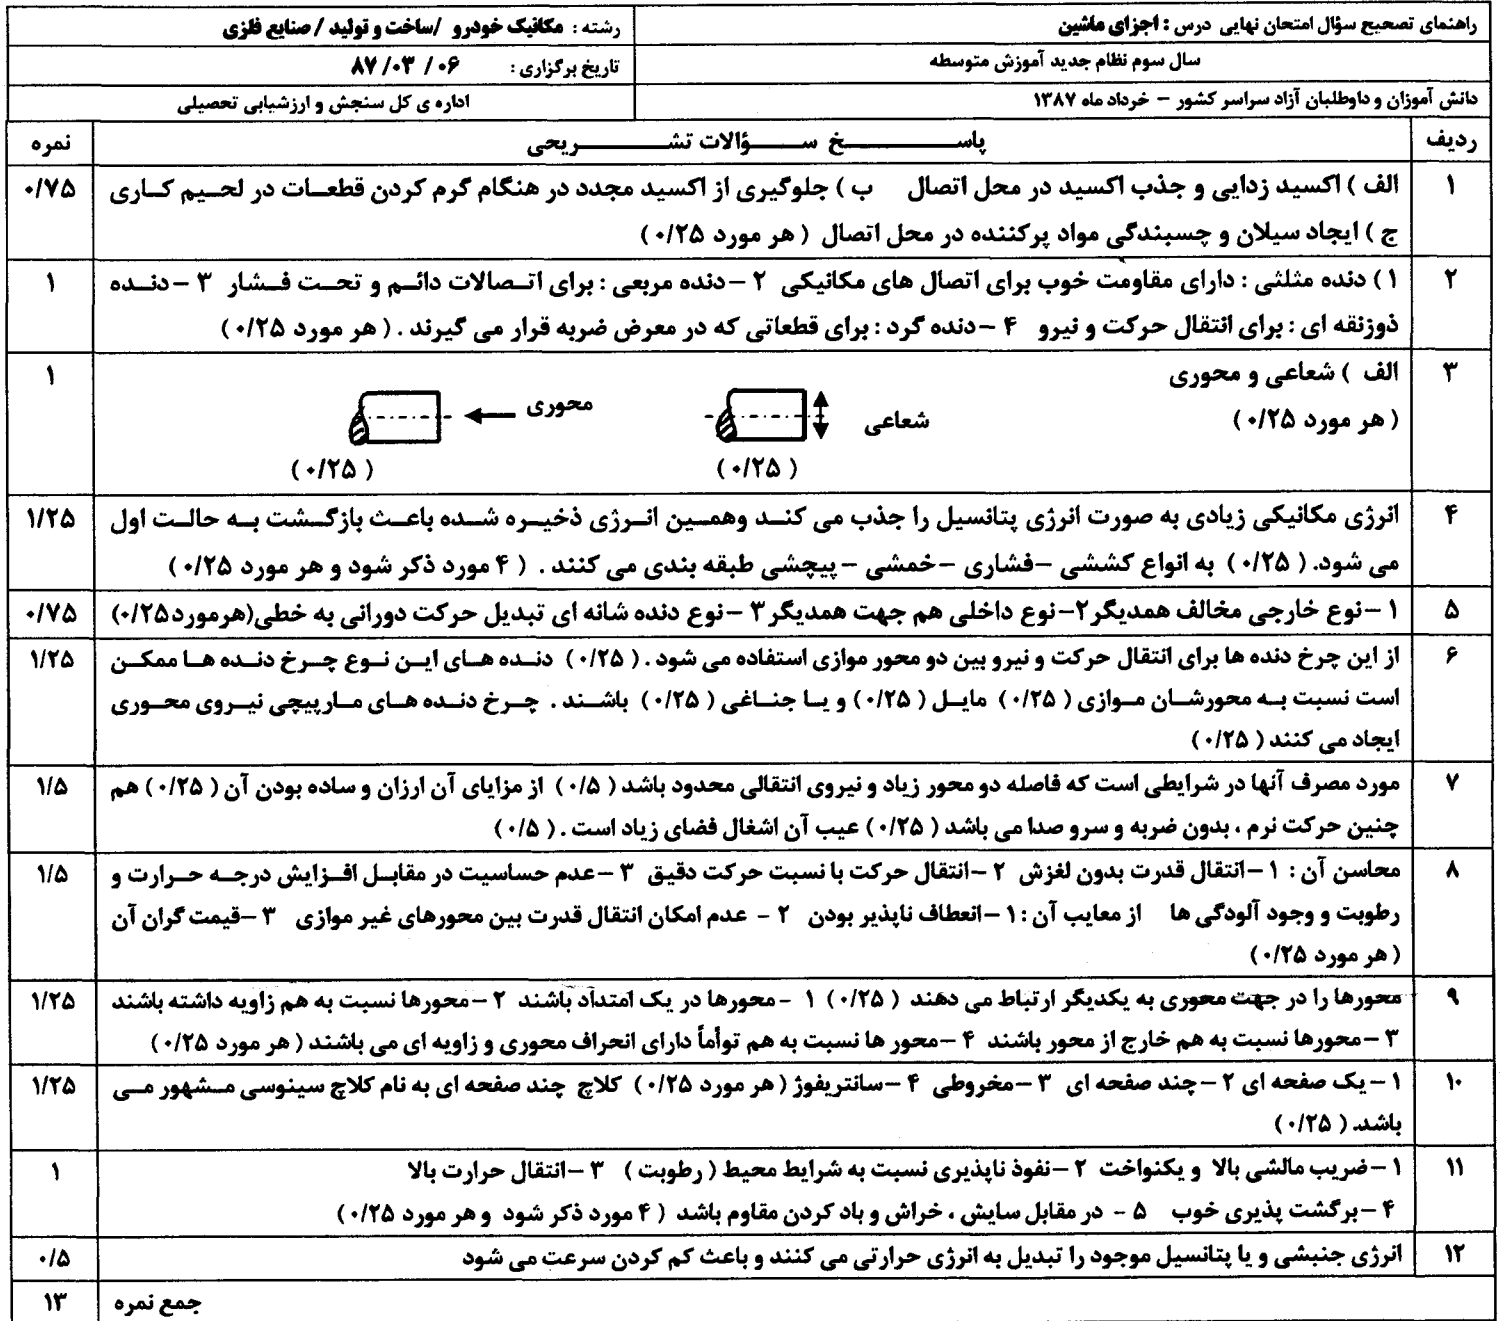 راهنمای تصحیح سؤال امتحان نهایی درس : اجزای ماشین
رشته : مکانیک خودرو /ساخت و تولید / صنایع فلزی
سال سوم نظام جدید آموزش متوسطه
تاریخ برگزاری : ۰۶ / ۰۳/ ۸۷
دانش آموزان و داوطلبان آزاد سراسر کشور – خرداد ماه ۱۳۸۷
اداره ی کل سنجش و ارزشیابی تحصیلی
ردیف
پاسخ سؤالات تشریحی
نمره
۱
الف ) اکسید زدایی و جذب اکسید در محل اتصال ب ) جلوگیری از اکسید مجدد در هنگام گرم کردن قطعات در لحیم کاری
۰/۷۵
ج ) ایجاد سیلان و چسبندگی مواد پرکننده در محل اتصال ( هر مورد ۰/۲۵ )
۲
۱ ) دنده مثلثی : دارای مقاومت خوب برای اتصال های مکانیکی ۲ –دنده مربعی : برای اتصالات دائم و تحت فشار ۳ –دنده
۱
ذوزنقه ای : برای انتقال حرکت و نیرو ۴ –دنده گرد : برای قطعاتی که در معرض ضربه قرار می گیرند . ( هر مورد ۰/۲۵ )
۳
الف ) شعاعی و محوری
۱
( هر مورد ۰/۲۵ )
شعاعی
محوری
( ۰/۲۵ )
( ۰/۲۵ )
۴
انرژی مکانیکی زیادی به صورت انرژی پتانسیل را جذب می کند وهمین انرژی ذخیره شده باعث بازگشت به حالت اول
۱/۲۵
می شود. ( ۰/۲۵ ) به انواع کششی –فشاری –خمشی –پیچشی طبقه بندی می کنند . ( ۴ مورد ذکر شود و هر مورد ۰/۲۵ )
۵
۱ –نوع خارجی مخالف همدیگر ۲–نوع داخلی هم جهت همدیگر ۳ –نوع دنده شانه ای تبدیل حرکت دورانی به خطی(هرمورد ۰/۲۵)
۰/۷۵
۶
از این چرخ دنده ها برای انتقال حرکت و نیرو بین دو محور موازی استفاده می شود . ( ۰/۲۵ ) دنده های این نوع چرخ دنده ها ممکن
۱/۲۵
است نسبت به محورشان موازی ( ۰/۲۵ ) مایل ( ۰/۲۵ ) و یا جناغی ( ۰/۲۵ ) باشند . چرخ دنده های مارپیچی نیروی محوری
ایجاد می کنند ( ۰/۲۵ )
۷
مورد مصرف آنها در شرایطی است که فاصله دو محور زیاد و نیروی انتقالی محدود باشد ( ۰/۵ ) از مزایای آن ارزان و ساده بودن آن ( ۰/۲۵ ) هم
۱/۵
چنین حرکت نرم ، بدون ضربه و سرو صدا می باشد ( ۰/۲۵ ) عیب آن اشغال فضای زیاد است . ( ۰/۵ )
۸
محاسن آن : ۱ –انتقال قدرت بدون لغزش ۲ –انتقال حرکت با نسبت حرکت دقیق ۳ –عدم حساسیت در مقابل افزایش درجه حرارت و
۱/۵
رطوبت و وجود آلودگی ها از معایب آن : ۱ –انعطاف ناپذیر بودن ۲ - عدم امکان انتقال قدرت بین محورهای غیر موازی ۳ –قیمت گران آن
( هر مورد ۰/۲۵ )
۹
محورها را در جهت محوری به یکدیگر ارتباط می دهند ( ۰/۲۵ ) ۱ -محورها در یک امتداد باشند ۲ –محورها نسبت به هم زاویه داشته باشند
۱/۲۵
۳ –محورها نسبت به هم خارج از محور باشند ۴ –محور ها نسبت به هم توأماً دارای انحراف محوری و زاویه ای می باشند ( هر مورد ۰/۲۵ )
۱۰
۱ – یک صفحه ای ۲ –چند صفحه ای ۳ –مخروطی ۴ –سانتریفوژ ( هر مورد ۰/۲۵ ) کلاچ چند صفحه ای به نام کلاچ سینوسی مشهور می
۱/۲۵
باشد. ( ۰/۲۵ )
۱۱
۱ –ضریب مالشی بالا و یکنواخت ۲ –نفوذ ناپذیری نسبت به شرایط محیط ( رطوبت ) ۳ –انتقال حرارت بالا
۱
۴ –برگشت پذیری خوب ۵ - در مقابل سایش ، خراش و باد کردن مقاوم باشد ( ۴ مورد ذکر شود و هر مورد ۰/۲۵ )
۱۲
انرژی جنبشی و یا پتانسیل موجود را تبدیل به انرژی حرارتی می کنند و باعث کم کردن سرعت می شود
۰/۵
جمع نمره
۱۳